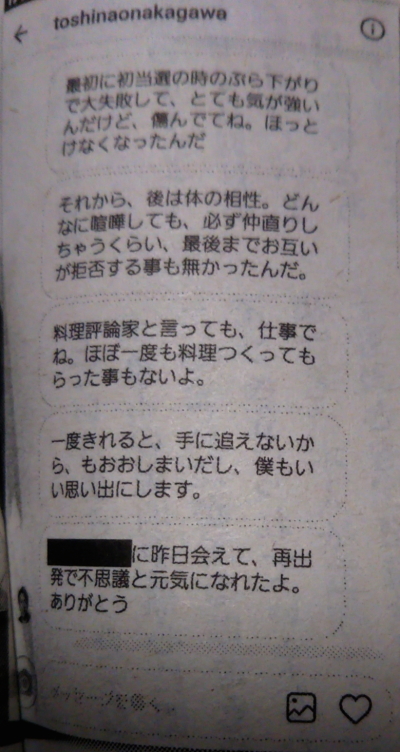 toshinaonakagawa
最初に初当選の時のぶら下がり
で大失敗して、とても気が強い
んだけど、傷んでてね。ほっと
けなくなったんだ
それから、後は体の相性。どん
なに喧嘩しても、必ず仲直りし
ちゃうくらい、最後までお互い
が拒否する事も無かったんだ。
料理評論家と言っても、仕事で
ね。ほぼ一度も料理つくっても
らった事もないよ。
一度きれると、手に追えないか
ら、もおおしまいだし、僕もい
い思い出にします。
に昨日会えて、再出
発で不思議と元気になれたよ。
ありがとう